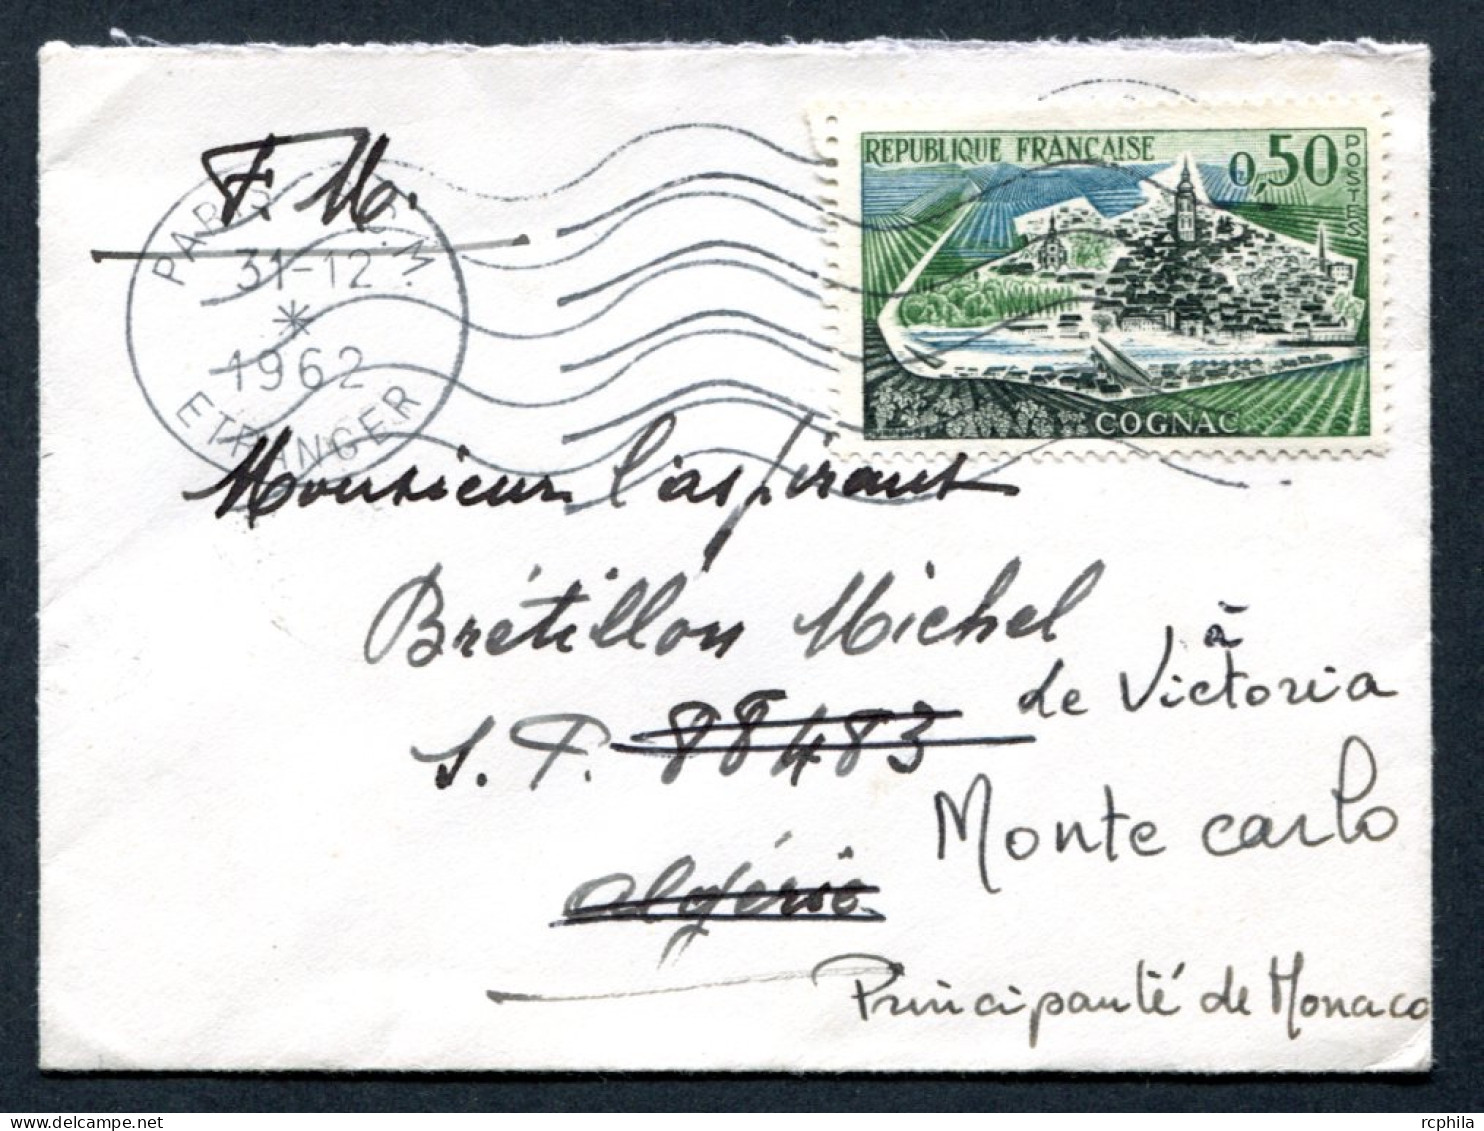 F.M.
PARIS R.M.
31-12
*
1962
ETRANGER
REPUBLIQUE FRANÇAISE
0,50
POSTES
COGNAC
Monsieur l'aspirant
Brétillon Michel
S.P. 88483
Algérie
à
de Victoria
Monte carlo
Principauté de Monaco
rcphila
delcampe.net